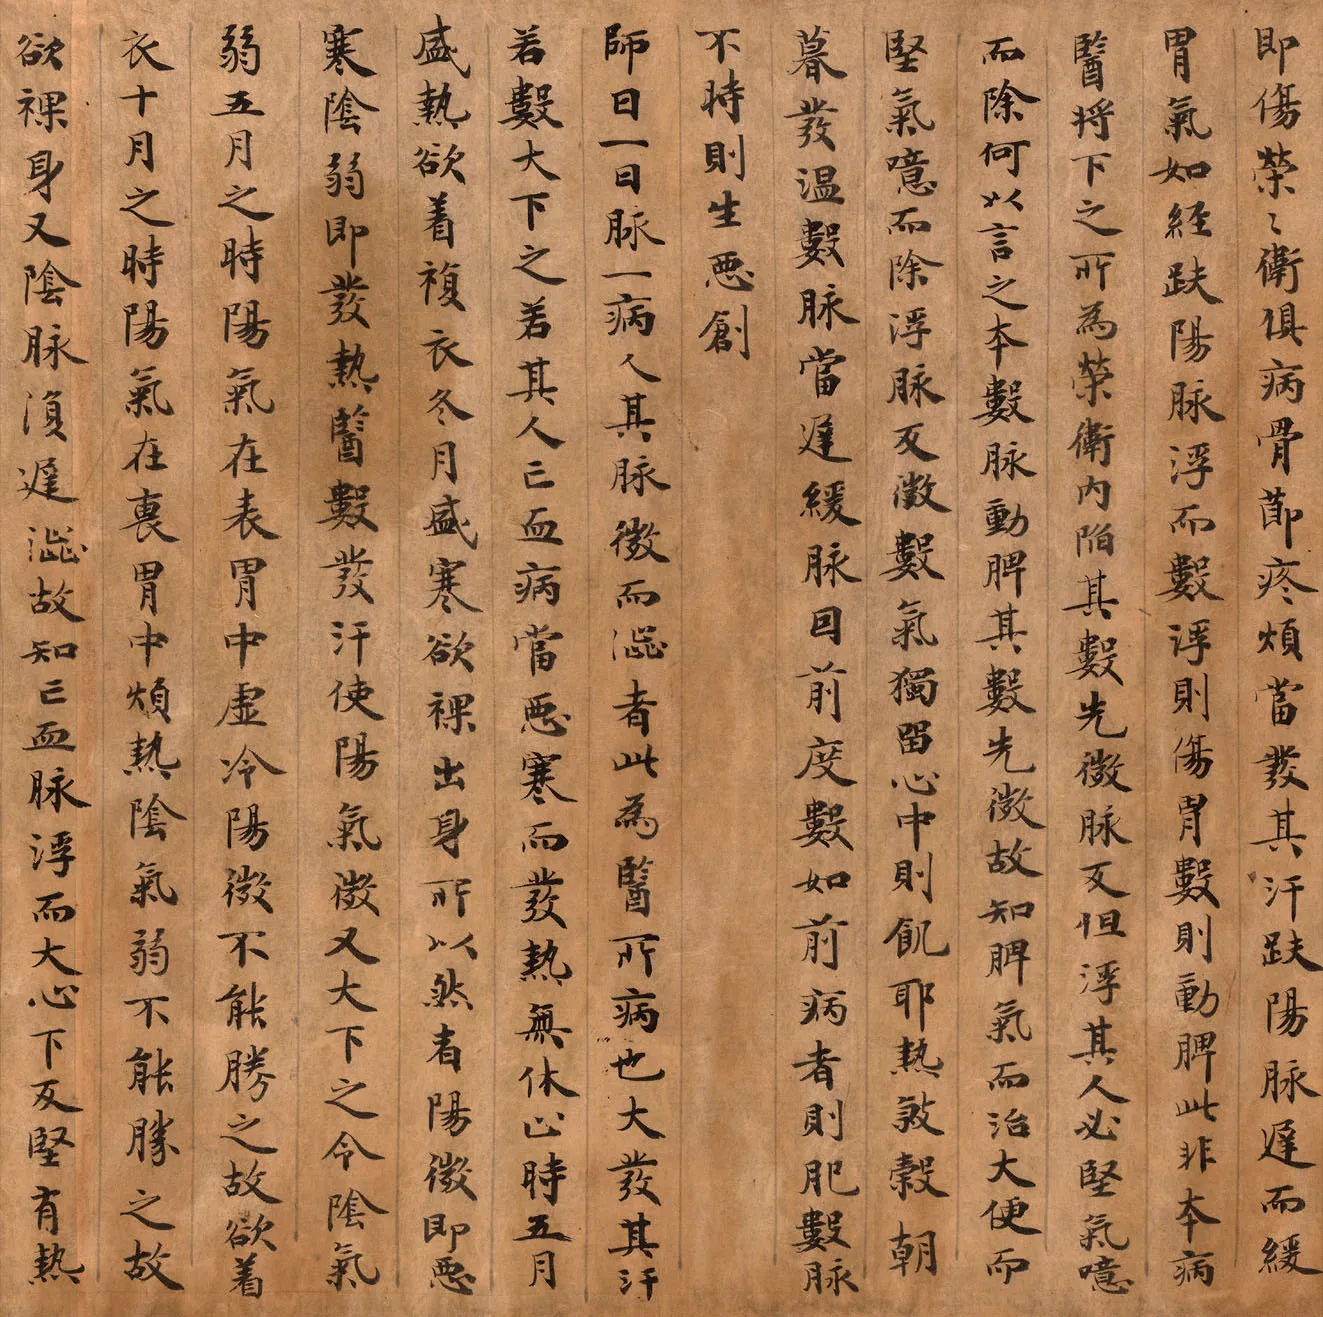 即傷榮〻衛俱病骨莭疼煩當發其汗趺陽脉遲而緩
胃氣如経趺陽脉浮而數浮則傷胃數則動脾此非本病
醫将下之所為榮衛内陷其數先微脉反但浮其人必堅氣噫
而除何以言之本數脉動脾其數先微故知脾氣而治大便而
堅氣噫而除浮脉反微數氣獨留心中則飢耶熱煞穀朝
暮發温數脉當遲緩脉回前度數如前病者則肥數脉
不時則生惡創
師曰一日脉一病人其脉微而澁者此為醫所病也大發其汗
若數大下之若其人亡血病當惡寒而發熱無休止時五月
盛熱欲着複衣冬月盛寒欲裸出身所以然者陽微即惡
寒陰弱即發熱醫數發汗使陽氣微又大下之令陰氣
弱五月之時陽氣在表胃中虚冷陽微不能勝之故欲着
衣十月之時陽氣在裏胃中煩熱陰氣弱不能勝之故
欲裸身又陰脉湏遲澁故知亡血脉浮而大心下反堅有熱